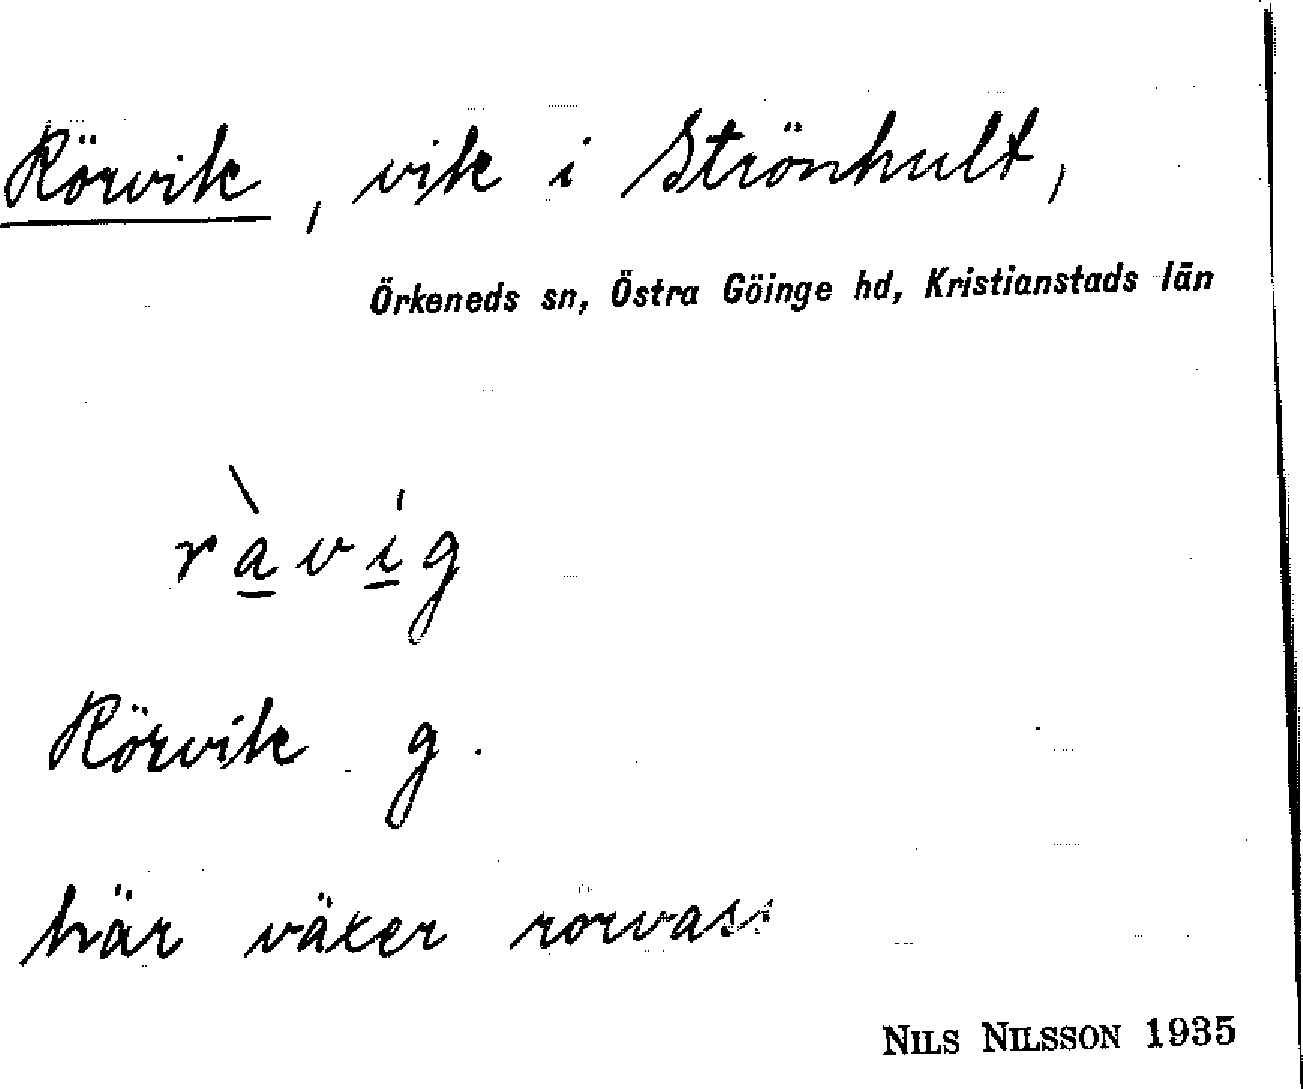 Rörvik, vik i Strönhult,
Örkeneds sn, Östra Göinge hd, Kristianstads län
ràvíg
Rörvik g.
här växer rörvass
NILS NILSSON 1935